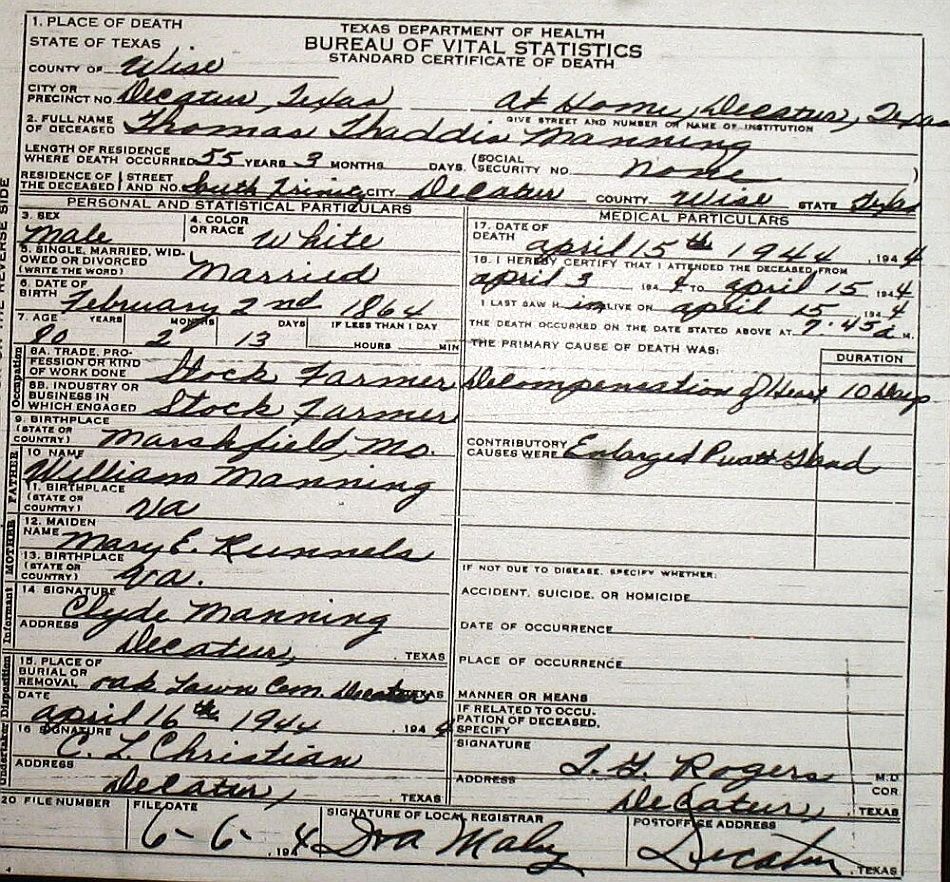 TEXAS DEPARTMENT OF HEALTH
BUREAU OF VITAL STATISTICS
STANDARD CERTIFICATE OF DEATH
1. PLACE OF DEATH
STATE OF TEXAS
COUNTY OF Wise
CITY OR PRECINCT NO. Decatur, Texas At Home, Decatur, Texas
GIVE STREET AND NUMBER OR NAME OF INSTITUTION
2. FULL NAME OF DECEASED Thomas Thaddis Manning
LENGTH OF RESIDENCE WHERE DEATH OCCURRED 55 YEARS 3 MONTHS DAYS (SOCIAL SECURITY NO. None )
RESIDENCE OF THE DECEASED STREET AND NO. South Trinity CITY Decatur COUNTY Wise STATE Texas
PERSONAL AND STATISTICAL PARTICULARS
3. SEX Male
4. COLOR OR RACE White
5. SINGLE, MARRIED, WIDOWED OR DIVORCED (WRITE THE WORD) Married
6. DATE OF BIRTH February 2nd 1864
7. AGE YEARS MONTHS DAYS IF LESS THAN 1 DAY
80 2 13 HOURS MIN
Occupation
8A. TRADE, PROFESSION OR KIND OF WORK DONE Stock Farmer
8B. INDUSTRY OR BUSINESS IN WHICH ENGAGED Stock Farmer
9. BIRTHPLACE (STATE OR COUNTRY) Marshfield, Mo.
FATHER
10 NAME William Manning
11. BIRTHPLACE (STATE OR COUNTRY) Va
MOTHER
12. MAIDEN NAME Mary E. Runnels
13. BIRTHPLACE (STATE OR COUNTRY) Va.
Informant
14 SIGNATURE Clyde Manning
ADDRESS Decatur, TEXAS
Disposition
15. PLACE OF BURIAL OR REMOVAL Oak Lawn Cem Decatur TEXAS
DATE April 16th 1944 , 194 4
Undertaker
16 SIGNATURE C. L. Christian
ADDRESS Decatur, TEXAS
MEDICAL PARTICULARS
17. DATE OF DEATH April 15th 1944 , 194 4
18. I HEREBY CERTIFY THAT I ATTENDED THE DECEASED FROM
April 3 194 4 TO April 15 194 4
I LAST SAW H im ALIVE ON April 15 , 194 4
THE DEATH OCCURRED ON THE DATE STATED ABOVE AT 7:45 a M.
THE PRIMARY CAUSE OF DEATH WAS: DURATION
Decompensation of Heart 10 Days
CONTRIBUTORY CAUSES WERE Enlarged Gland
IF NOT DUE TO DISEASE, SPECIFY WHETHER:
ACCIDENT, SUICIDE, OR HOMICIDE
DATE OF OCCURRENCE
PLACE OF OCCURRENCE
MANNER OR MEANS
IF RELATED TO OCCUPATION OF DECEASED, SPECIFY
SIGNATURE T. G. Rogers M.D
COR
ADDRESS Decatur, TEXAS
20. FILE NUMBER
FILE DATE 6-6- , 194 4
SIGNATURE OF LOCAL REGISTRAR Iva
POSTOFFICE ADDRESS Decatur , TEXAS
REVERSE SIDE